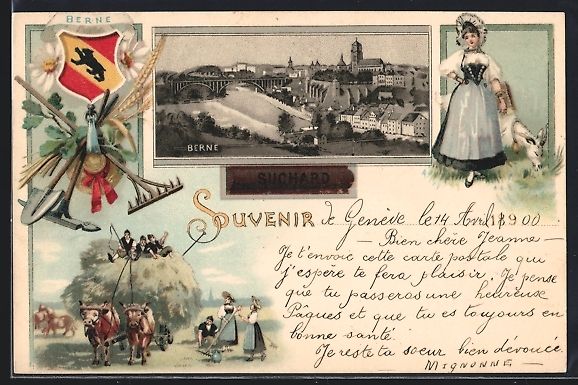 BERNE
BERNE
SUCHARD
SOUVENIR de Genève le 14 Avril 1900
— Bien chère Jeanne —
Je t'envoie cette carte postale qui
j'espère te fera plaisir. Je pense
que tu passeras une heureuse
Pâques et que tu es toujours en
bonne santé.
Je reste ta sœur bien dévouée.
MIGNONNE —